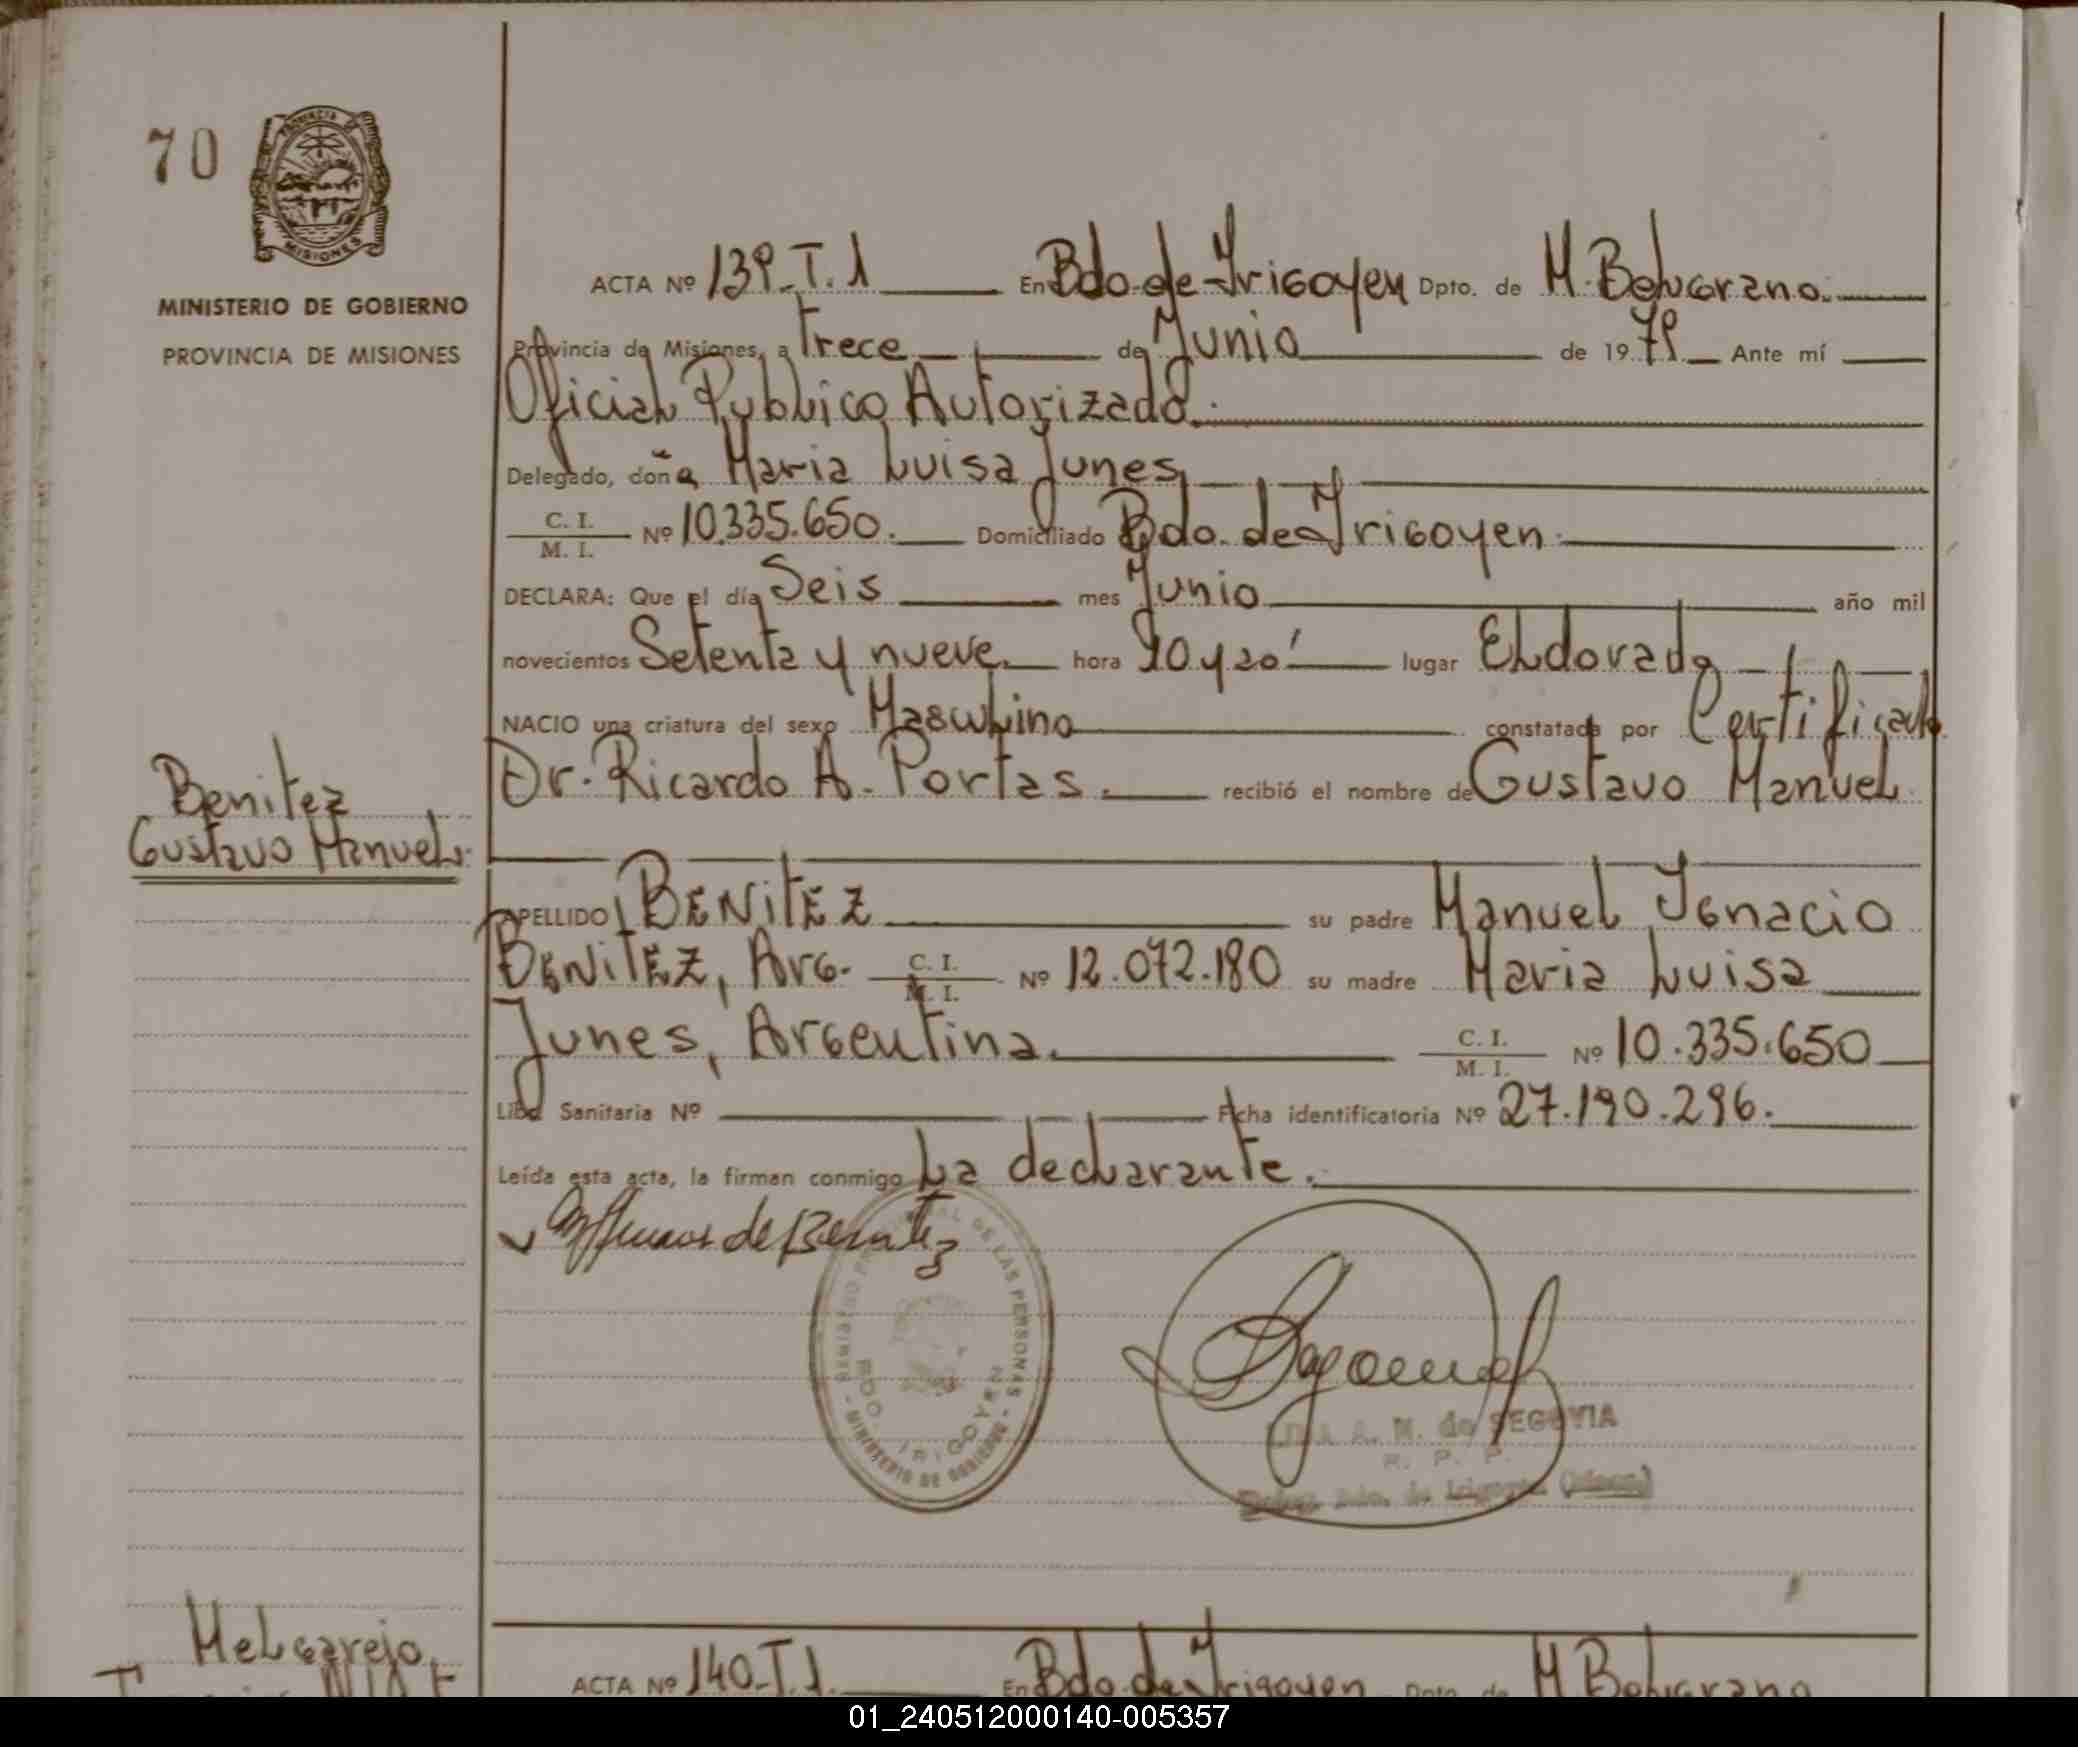 70
PROVINCIA DE
MISIONES
MINISTERIO DE GOBIERNO
PROVINCIA DE MISIONES
ACTA Nº 139-T.1 En Bdo de Irigoyen Dpto. de M. Belgrano.
Provincia de Misiones, a trece de Junio de 1979 Ante mí
Oficial Publico Autorizado.
Delegado, doña Maria Luisa Junes
C. I.
M. I. Nº 10.335.650. Domiciliado Bdo. de Irigoyen.
DECLARA: Que el día Seis mes Junio año mil
novecientos Setenta y nueve hora 20 y 20' lugar Eldorado
NACIO una criatura del sexo Masculino constatada por Certificado
Dr. Ricardo A. Portas. recibió el nombre de Gustavo Manuel
Benitez
Gustavo Manuel.
APELLIDO BENITEZ su padre Manuel Ignacio
BENITEZ, Arg. C. I.
M. I. Nº 12.072.180 su madre Maria Luisa
Junes, Argentina. C. I.
M. I. Nº 10.335.650
Libd Sanitaria Nº Ficha identificatoria Nº 27.190.296.
Leída esta acta, la firman conmigo La declarante.
de Benitez
REGISTRO PROVINCIAL DE LAS PERSONAS
BDO. IRIGOYEN
- MINISTERIO DE GOBIERNO -
A. M. de SEGOVIA
R. P. P.
Bdo. de Irigoyen (Misiones)
Melgarejo
ACTA Nº 140-T.1. En Bdo. de Irigoyen Dpto. de M. Belgrano
01_240512000140-005357